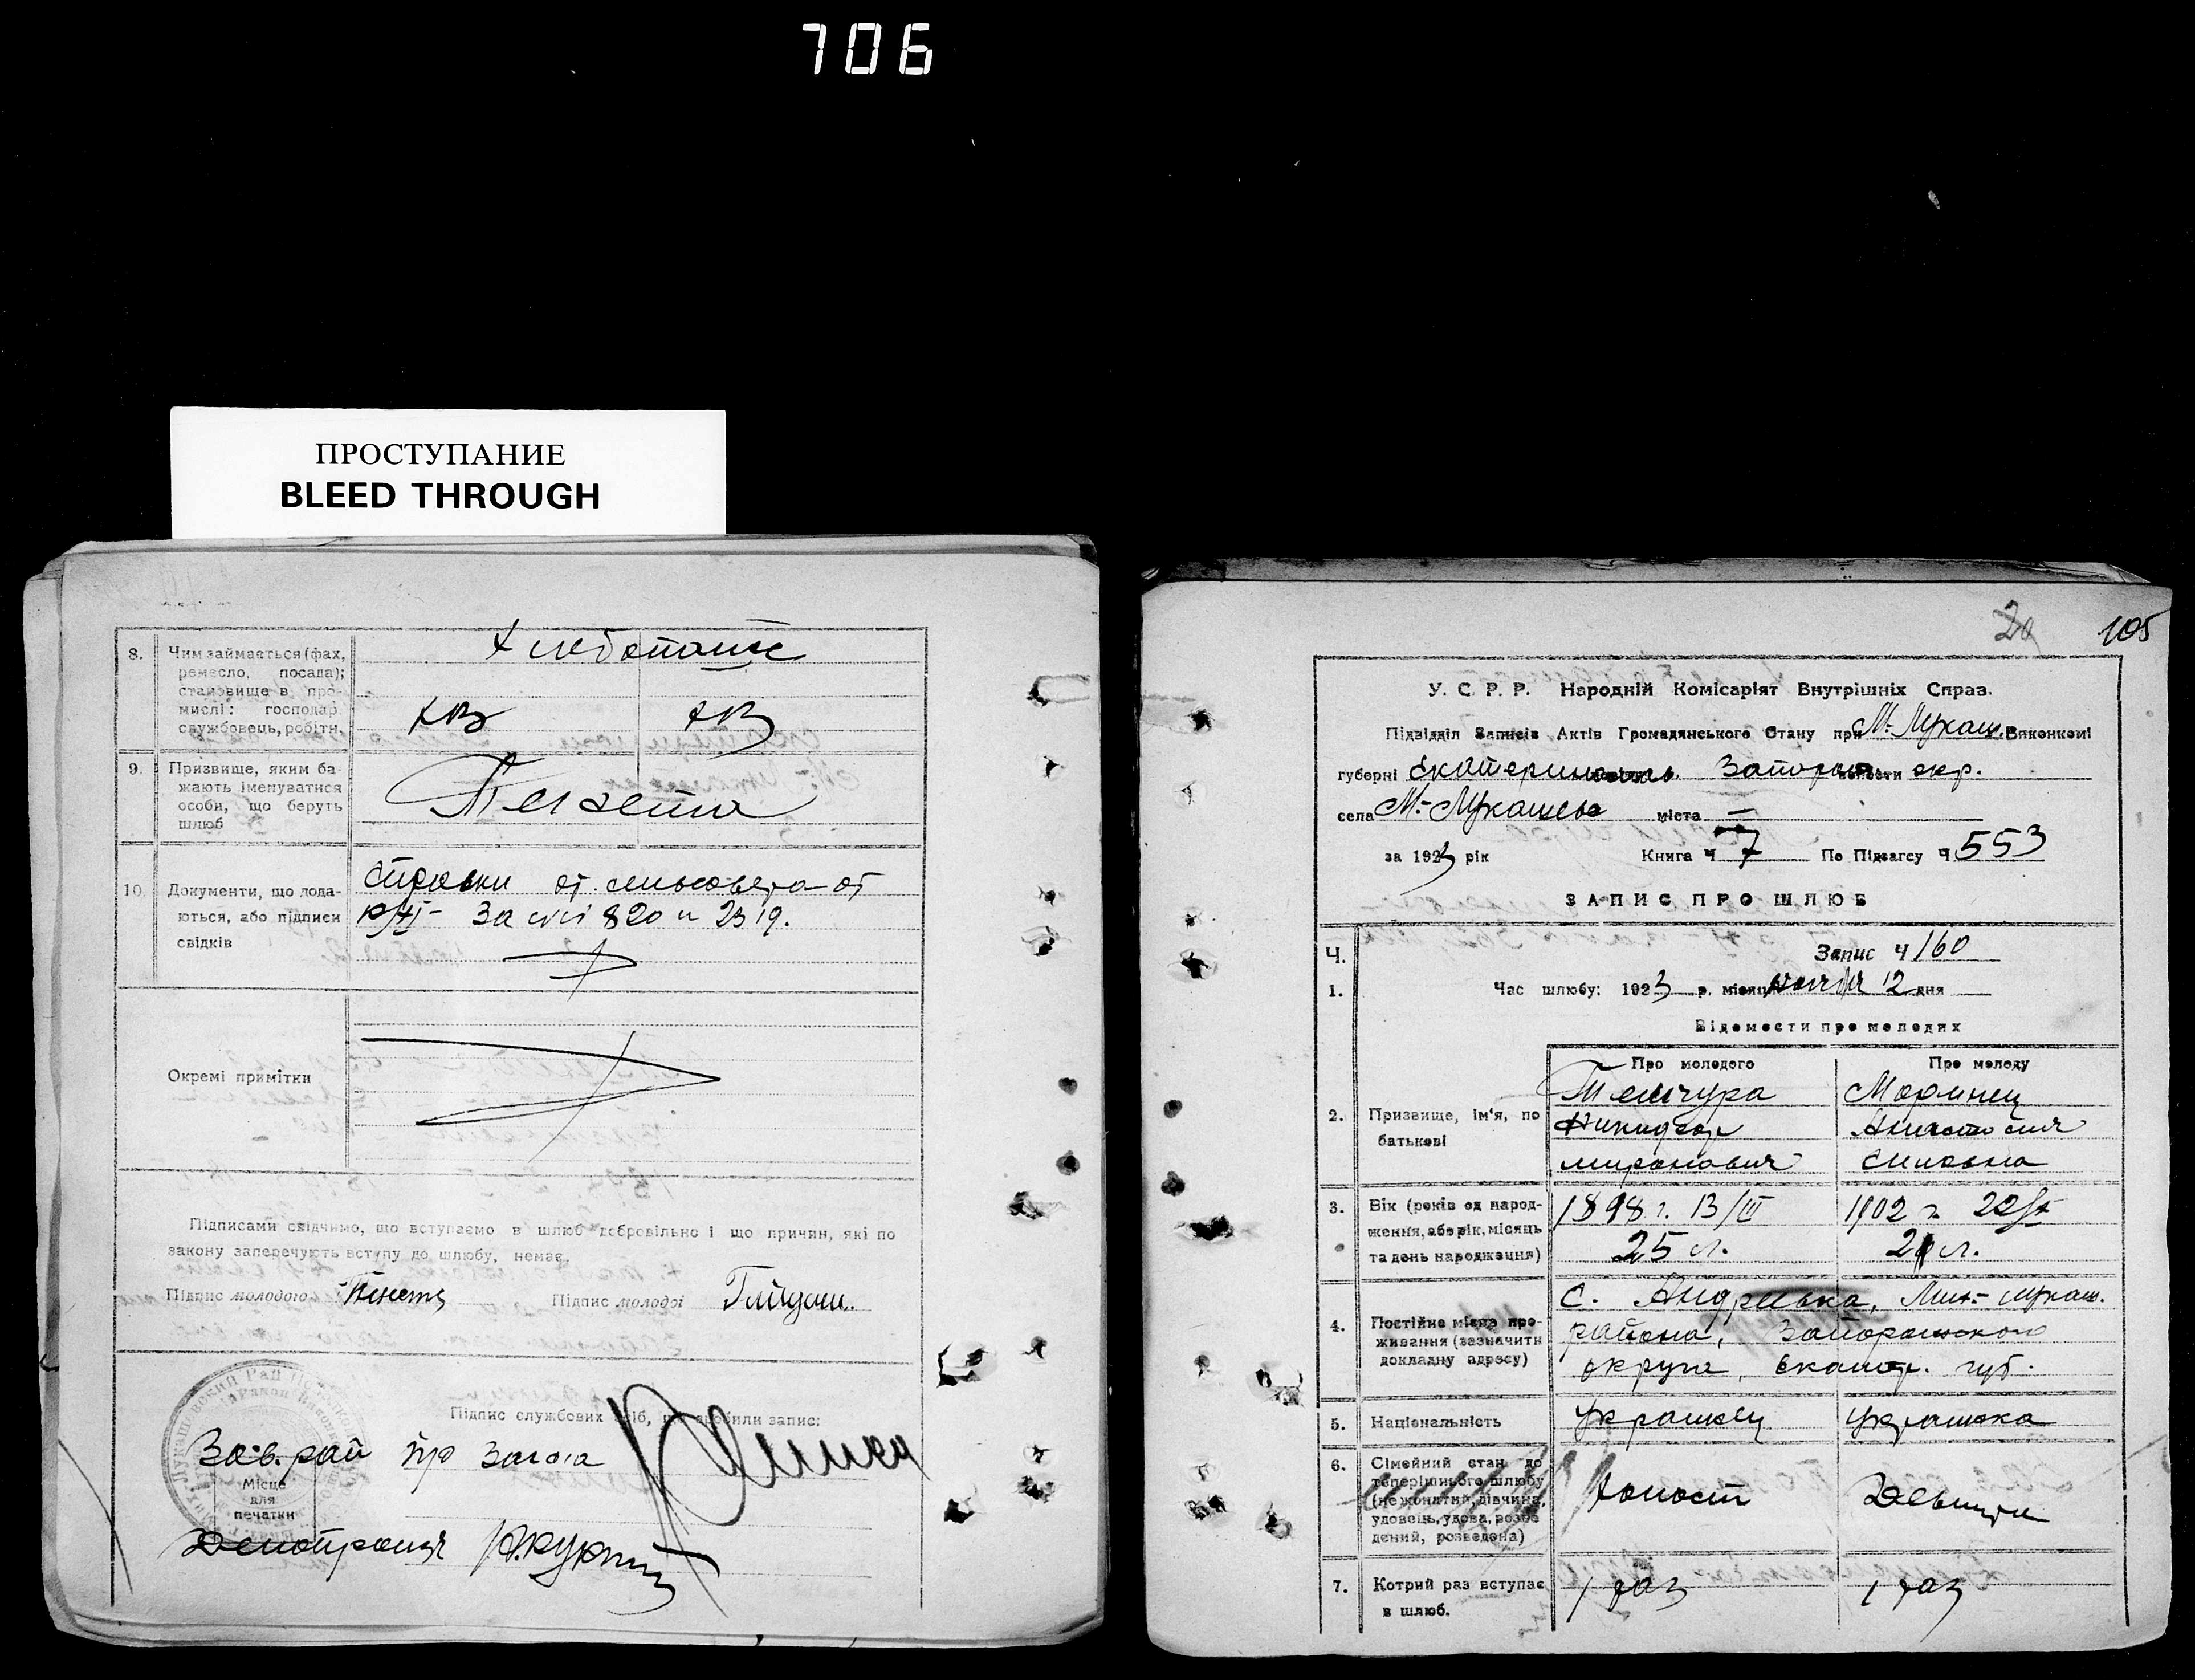 706
ПРОСТУПАНИЕ
BLEED THROUGH
8.
Чим займається (фах,
ремесло, посада);
становище в про-
мислі: господар
службовець, робітн.
9.
Призвище, яким ба-
жають іменуватися
особи, що беруть
шлюб
10.
Документи, що пода-
ються, або підписи
свідків
Справки от сельсовета от
За №№ 820 и 2319.
Окремі примітки
Підписами свідчимо, що вступаємо в шлюб добровільно і що причин, які по
закону заперечують вступу до шлюбу, немає.
Підпис молодого
Підпис молодої
Підпис службових осіб, що зробили запис:
Зав. рай п/о Загса
Місце
для
печатки
Делопроизв
20 105
У. С. Р. Р. Народній Комісаріят Внутрішніх Справ.
Підвідділ Записів Актів Громадянського Стану при М.-Лукаш. Виконкомі
губерні Екатеринослав. Запорож волости окр.
села М.-Лукашево міста —
за 1923 рік Книга Ч 7 По Підзагсу Ч 553
ЗАПИС ПРО ШЛЮБ
Ч.
Запис Ч 160
1.
Час шлюбу: 1923 р. місяц ноября 12 дня
Відомости про молодих
Про молодого Про молоду
2.
Призвище, ім'я, по
батькові
Никифор
миронович
Анастасия
3.
Вік (років од народ-
ження, або рік, місяць
та день народження)
1898 г. 13/III 1902 г.
25 л.
4.
Постійне місце про-
живання (зазначити
докладну адресу)
с. Андреевка, Мих.-Лукаш.
района, Запорожского
округа, Екатер. губ.
5.
Національність
украинец украинка
6.
Сімейний стан до
теперішнього шлюбу
(не жонатий, дівчина,
удовець, удова, розве
дений, розведена)
холост Девица
7.
Котрий раз вступає
в шлюб.
1 раз 1 раз